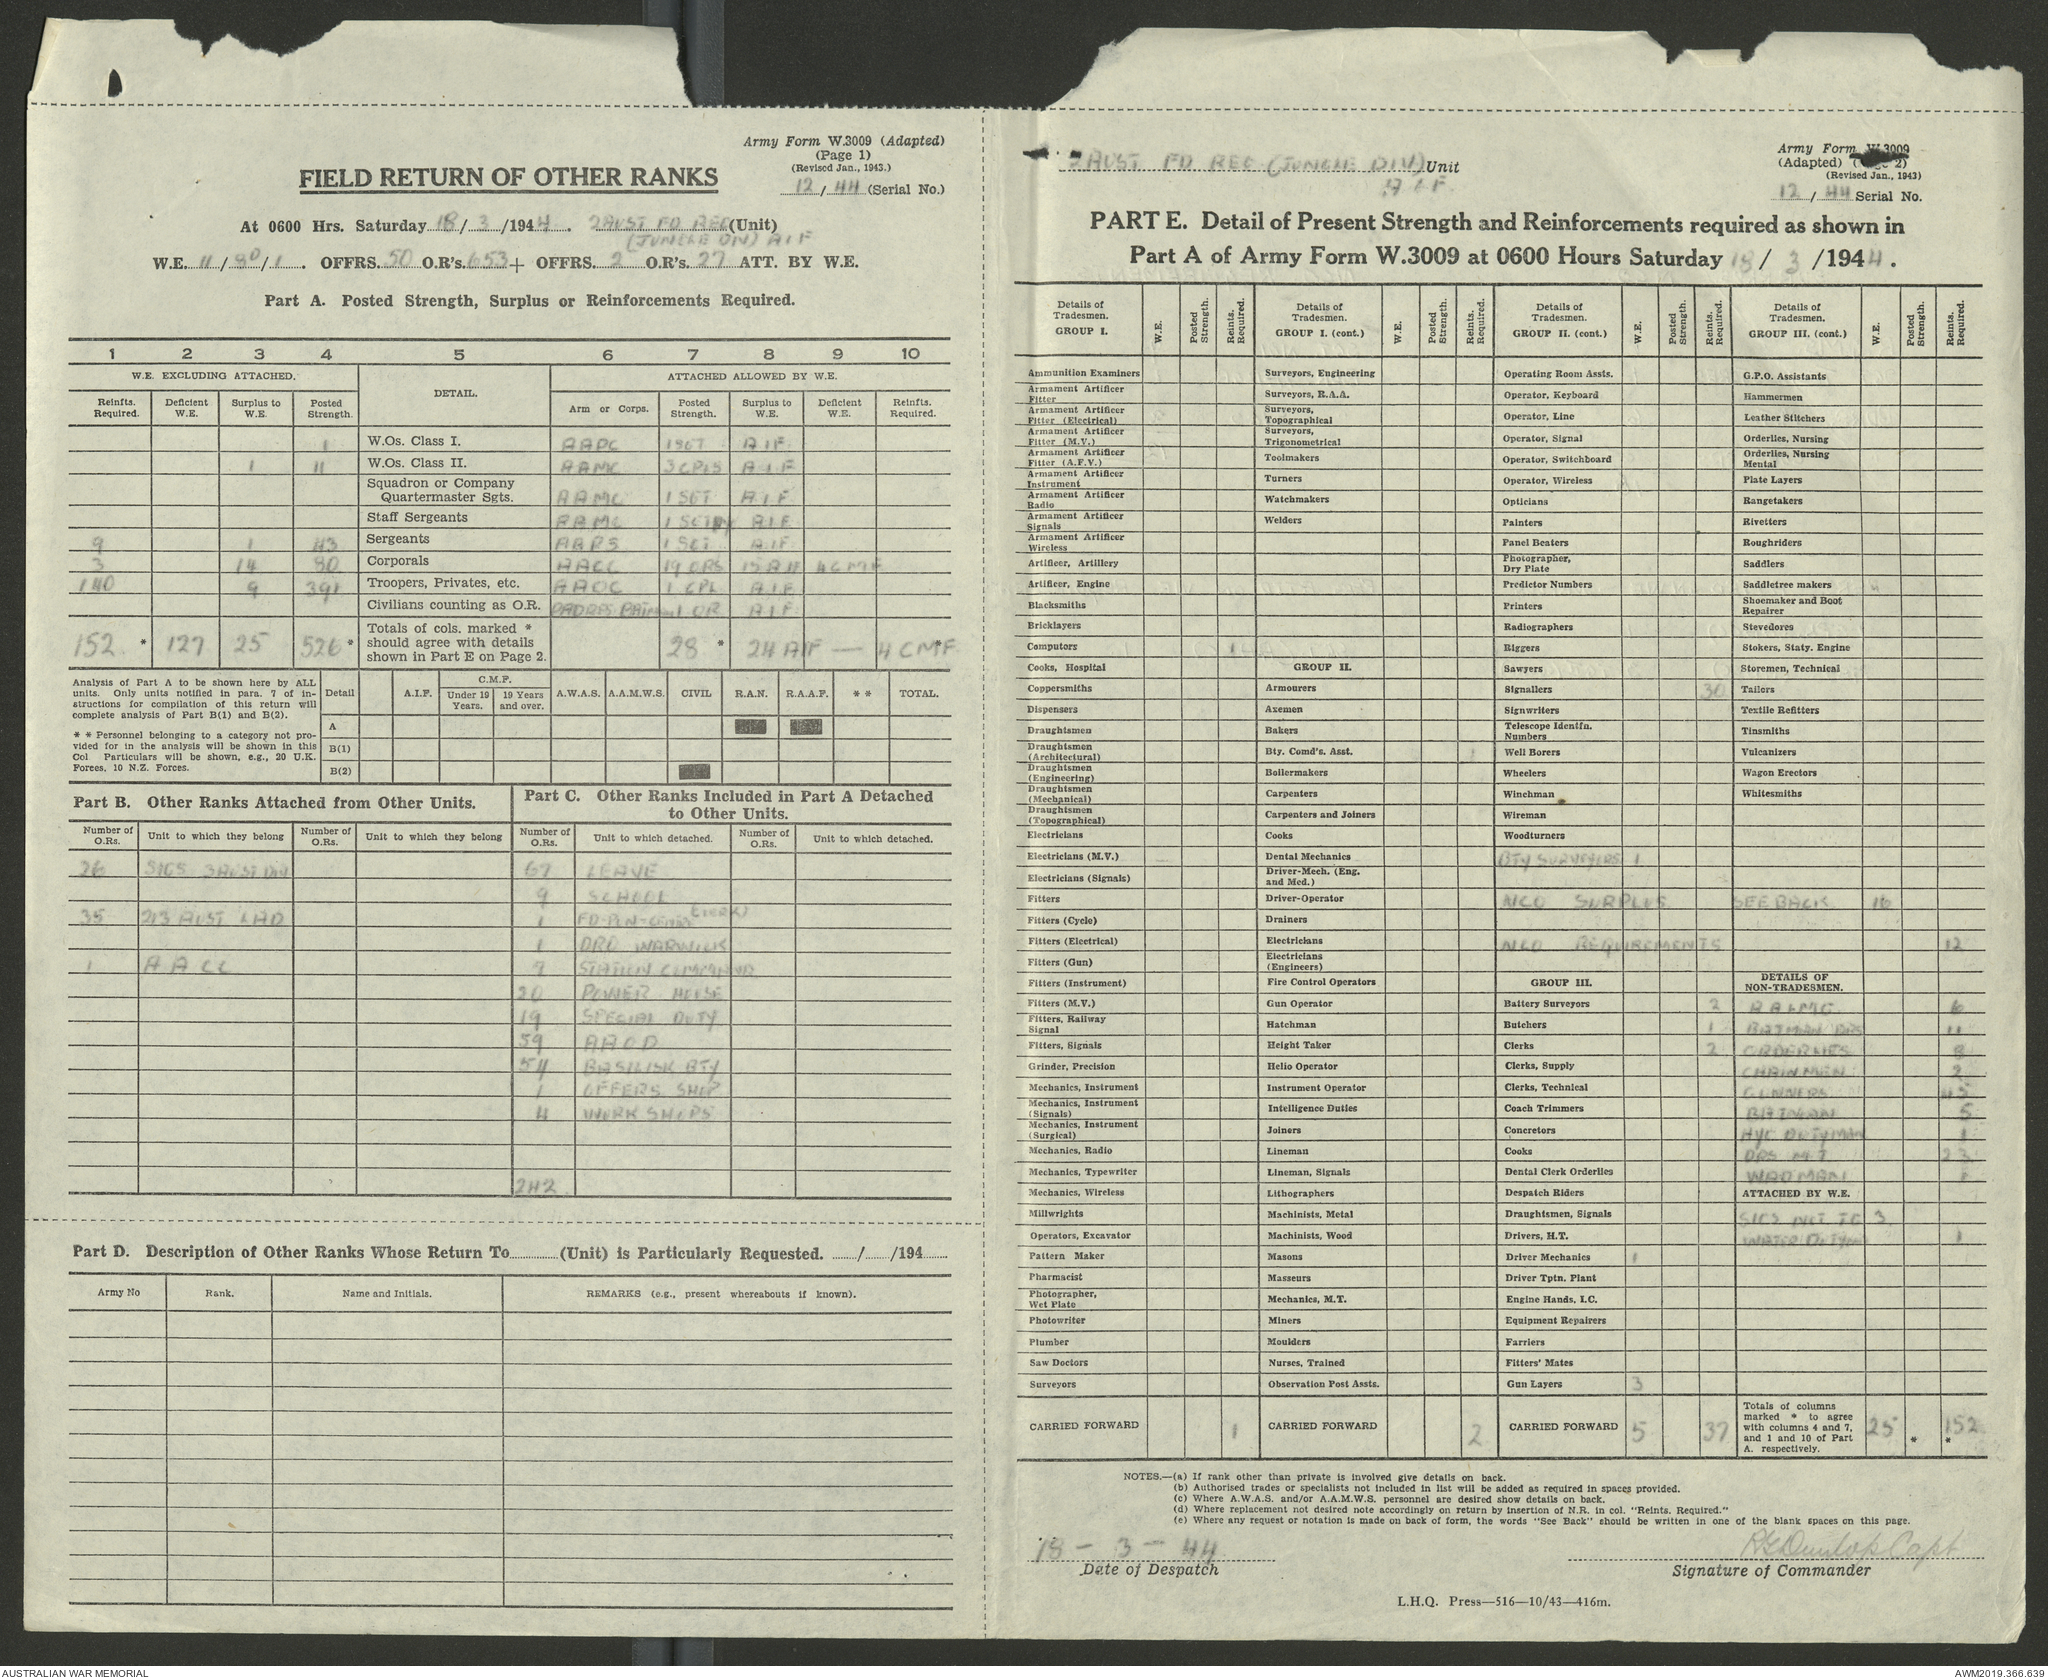 Army Form W.3009 (Adapted)
(Page 1)
(Revised Jan., 1943.)
12/44 (Serial No.)
FIELD RETURN OF OTHER RANKS
At 0600 Hrs. Saturday 18/3/1944. 2 AUST FD REG (Unit)
(JUNGLE DIV) AIF
W.E. 11/80/1. OFFRS. 50 O.R's. 653 + OFFRS. 2 O.R's. 27 ATT. BY W.E.
Part A. Posted Strength, Surplus or Reinforcements Required.
1 2 3 4 5 6 7 8 9 10
W.E. EXCLUDING ATTACHED. DETAIL. ATTACHED ALLOWED BY W.E.
Reinfts. Required. Deficient W.E. Surplus to W.E. Posted Strength. Arm or Corps. Posted Strength. Surplus to W.E. Deficient W.E. Reinfts. Required.
1 W.Os. Class I. AAPC 1 SGT AIF
1 11 W.Os. Class II. AAMC 3 CPLS AIF
Squadron or Company Quartermaster Sgts. AAMC 1 SGT AIF
Staff Sergeants AAMC AIF
9 1 43 Sergeants 1 SGT AIF
3 14 80 Corporals AACC 19 ORS 15 AIF 4 CMF
140 9 391 Troopers, Privates, etc. AAOC 1 CPL AIF
Civilians counting as O.R. PADRES 1 OR AIF
152 * 127 25 526 * Totals of cols. marked * should agree with details shown in Part E on Page 2. 28 * 24 AIF — 4 CMF *
Analysis of Part A to be shown here by ALL units. Only units notified in para. 7 of instructions for compilation of this return will complete analysis of Part B(1) and B(2).
* * Personnel belonging to a category not provided for in the analysis will be shown in this Col Particulars will be shown, e.g., 20 U.K. Forces, 10 N.Z. Forces.
Detail A.I.F. C.M.F. Under 19 Years. 19 Years and over. A.W.A.S. A.A.M.W.S. CIVIL R.A.N. R.A.A.F. * * TOTAL.
A
B(1)
B(2)
Part B. Other Ranks Attached from Other Units.
Number of O.Rs. Unit to which they belong Number of O.Rs. Unit to which they belong
26 SIGS 3 AUST DIV
35 213 AUST LAD
1 AACC
Part C. Other Ranks Included in Part A Detached to Other Units.
Number of O.Rs. Unit to which detached. Number of O.Rs. Unit to which detached.
67 LEAVE
9 SCHOOL
1 (CLERK)
1 DRO WARWICK
7 STATION
20 POWER HOUSE
19 SPECIAL DUTY
59 AAOD
54 BASILISK BTY
1 OFFERS SHOP
4 WORKSHOPS
242
Part D. Description of Other Ranks Whose Return To (Unit) is Particularly Requested. / /194
Army No Rank. Name and Initials. REMARKS (e.g., present whereabouts if known).
Army Form W.3009
(Adapted)
(Revised Jan., 1943)
12/44 Serial No.
2 AUST FD REG (JUNGLE DIV) Unit
AIF
PART E. Detail of Present Strength and Reinforcements required as shown in
Part A of Army Form W.3009 at 0600 Hours Saturday 18/3/1944.
Details of Tradesmen. GROUP I. W.E. Posted Strength. Reints. Required.
Ammunition Examiners
Armament Artificer Fitter
Armament Artificer Fitter (Electrical)
Armament Artificer Fitter (M.V.)
Armament Artificer Fitter (A.F.V.)
Armament Artificer Instrument
Armament Artificer Radio
Armament Artificer Signals
Armament Artificer Wireless
Artificer, Artillery
Artificer, Engine
Blacksmiths
Bricklayers
Computors 1
Cooks, Hospital
Coppersmiths
Dispensers
Draughtsmen
Draughtsmen (Architectural)
Draughtsmen (Engineering)
Draughtsmen (Mechanical)
Draughtsmen (Topographical)
Electricians
Electricians (M.V.)
Electricians (Signals)
Fitters
Fitters (Cycle)
Fitters (Electrical)
Fitters (Gun)
Fitters (Instrument)
Fitters (M.V.)
Fitters, Railway Signal
Fitters, Signals
Grinder, Precision
Mechanics, Instrument
Mechanics, Instrument (Signals)
Mechanics, Instrument (Surgical)
Mechanics, Radio
Mechanics, Typewriter
Mechanics, Wireless
Millwrights
Operators, Excavator
Pattern Maker
Pharmacist
Photographer, Wet Plate
Photowriter
Plumber
Saw Doctors
Surveyors
CARRIED FORWARD 1
Details of Tradesmen. GROUP I. (cont.) W.E. Posted Strength. Reints. Required.
Surveyors, Engineering
Surveyors, R.A.A.
Surveyors, Topographical
Surveyors, Trigonometrical
Toolmakers
Turners
Watchmakers
Welders
GROUP II.
Armourers
Axemen
Bakers
Bty. Comd's. Asst. 1
Boilermakers
Carpenters
Carpenters and Joiners
Cooks
Dental Mechanics
Driver-Mech. (Eng. and Med.)
Driver-Operator
Drainers
Electricians
Electricians (Engineers)
Fire Control Operators
Gun Operator
Hatchman
Height Taker
Helio Operator
Instrument Operator
Intelligence Duties
Joiners
Lineman
Lineman, Signals
Lithographers
Machinists, Metal
Machinists, Wood
Masons
Masseurs
Mechanics, M.T.
Miners
Moulders
Nurses, Trained
Observation Post Assts.
CARRIED FORWARD 2
Details of Tradesmen. GROUP II. (cont.) W.E. Posted Strength. Reints. Required.
Operating Room Assts.
Operator, Keyboard
Operator, Line
Operator, Signal
Operator, Switchboard
Operator, Wireless
Opticians
Painters
Panel Beaters
Photographer, Dry Plate
Predictor Numbers
Printers
Radiographers
Riggers
Sawyers
Signallers 30
Signwriters
Telescope Identfn. Numbers
Well Borers
Wheelers
Winchman
Wireman
Woodturners
BTY SURVEYORS 1
NCO SURPLUS SEE BACK 16
NCO REQUIREMENTS 12
GROUP III.
Battery Surveyors 2
Butchers 1
Clerks 2
Clerks, Supply
Clerks, Technical
Coach Trimmers
Concretors
Cooks
Dental Clerk Orderlies
Despatch Riders
Draughtsmen, Signals
Drivers, H.T.
Driver Mechanics 1
Driver Tptn. Plant
Engine Hands, I.C.
Equipment Repairers
Farriers
Fitters' Mates
Gun Layers 3
CARRIED FORWARD 5 37
Details of Tradesmen. GROUP III. (cont.) W.E. Posted Strength. Reints. Required.
G.P.O. Assistants
Hammermen
Leather Stitchers
Orderlies, Nursing
Orderlies, Nursing Mental
Plate Layers
Rangetakers
Rivetters
Roughriders
Saddlers
Saddletree makers 4
Shoemaker and Boot Repairer
Stevedores
Stokers, Staty. Engine
Storemen, Technical
Tailors
Textile Refitters
Tinsmiths
Vulcanizers
Wagon Erectors
Whitesmiths
DETAILS OF NON-TRADESMEN.
AALMG 6
BATMAN DRS 11
ORDERLIES 8
CHAINMEN 2
GUNNERS 45
BATMAN 5
HYG DUTYMAN 1
DRS M.T 23
WADMAN 1
ATTACHED BY W.E.
SIGS NOT TG 3
WATER DUTY 1
Totals of columns marked * to agree with columns 4 and 7, and 1 and 10 of Part A. respectively. 25 * 152 *
NOTES.—(a) If rank other than private is involved give details on back.
(b) Authorised trades or specialists not included in list will be added as required in spaces provided.
(c) Where A.W.A.S. and/or A.A.M.W.S. personnel are desired show details on back.
(d) Where replacement not desired note accordingly on return by insertion of N.R. in col. "Reints. Required."
(e) Where any request or notation is made on back of form, the words "See Back" should be written in one of the blank spaces on this page.
18 - 3 - 44
Date of Despatch
RG Dunlop Capt
Signature of Commander
L.H.Q. Press—516—10/43—416m.
AUSTRALIAN WAR MEMORIAL
AWM2019.366.639